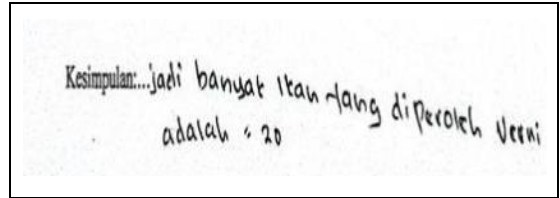 Kesimpulan:...jadi banyak ikan yang diperoleh Verni
adalah = 20